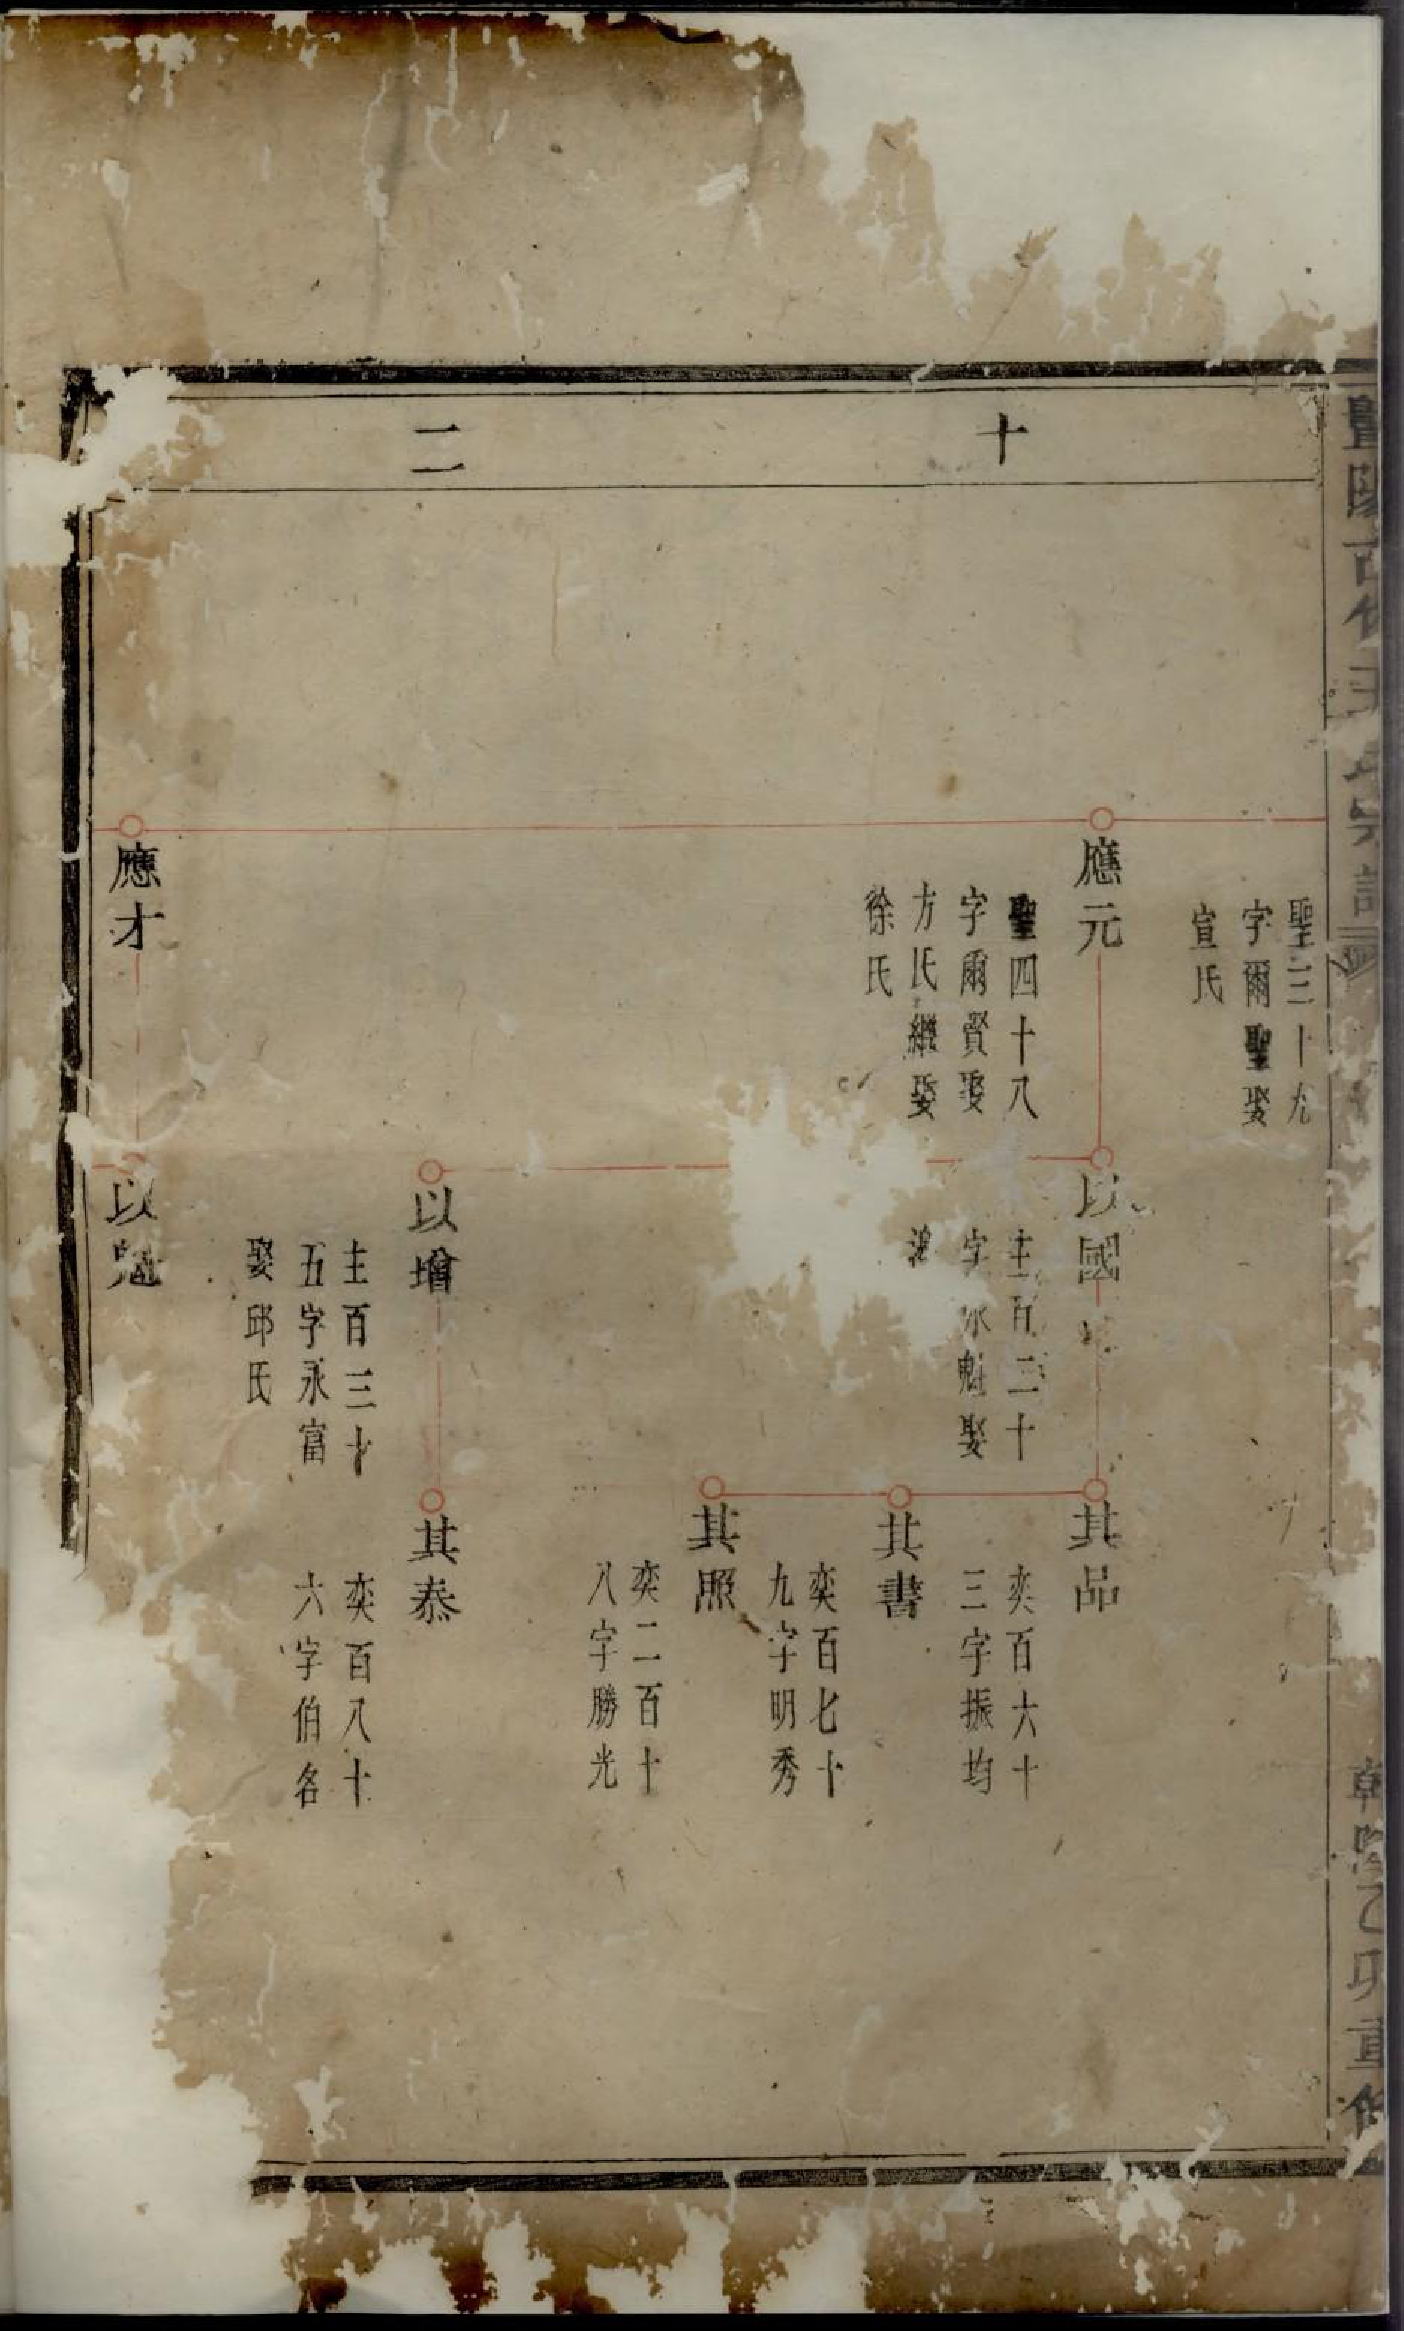 十
二
聖三十九
字爾聖娶
宣氏
應元
聖四十八
字爾賢娶
方氏繼娶
徐氏
應才
以國
主百二十
字 魁娶
以增
主百三十
五字永富
娶邱氏
以魁
其品
奕百六十
三字振均
其書
奕百七十
九字明秀
其照
奕二百十
八字勝光
其泰
奕百八十
六字伯名
暨陽古 氏宗譜
乾隆乙卯重修